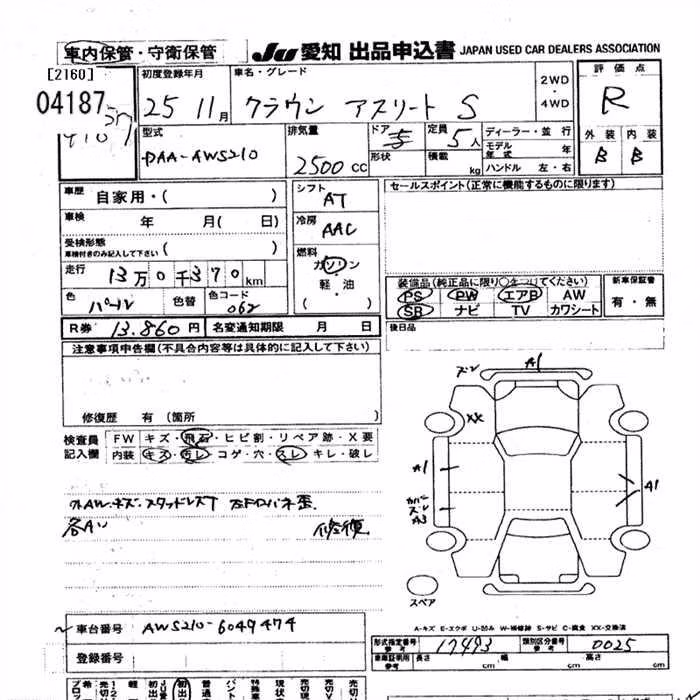 車内保管・守衛保管 JU 愛知 出品申込書 JAPAN USED CAR DEALERS ASSOCIATION
[2160]
04187
初度登録年月 車名・グレード 2WD・4WD 評価点
25 11月 クラウン アスリート S R
型式 排気量 ドア 定員 ディーラー・並行 外装 内装
DAA-AWS210 2500CC 5 5人 モデル年式 年 B B
形状 積載 kg ハンドル 左・右
車歴 自家用・( ) シフト AT セールスポイント(正常に機能するものに限ります)
車検 年 月( 日) 冷房 AAC
受検形態 車検付きのみ記入して下さい ( ) 燃料
走行 13万0千370km ガソリン・軽油 ( ・ )
装備品(純正品に限り○をつけてください) 新車保証書
色 パール 色替 色コード 062 PS PW エアB AW 有・無
SR ナビ TV カワシート
R券 13.860円 名変通知期限 月 日 後日品
注意事項申告欄(不具合内容等は具体的に記入して下さい)
修復歴 有(箇所 )
検査員記入欄 FW キズ・飛石・ヒビ割・リペア跡・X要
内装 キズ・汚レ・コゲ・穴・スレ・キレ・破レ
外AWキズ・スタッドレスT
各AU 修復
ズレ A1
XX
A1 A1
カバーズレ
A3
スペア
A-キズ E-エクボ U-凹み W-補修跡 S-サビ C-腐食 XX-交換済
車台番号 AWS210-6049474
型式指定番号 参考 17493 類別区分番号 参考 0025
登録番号 車車証明用 参考 長さ cm 幅 cm 高さ cm